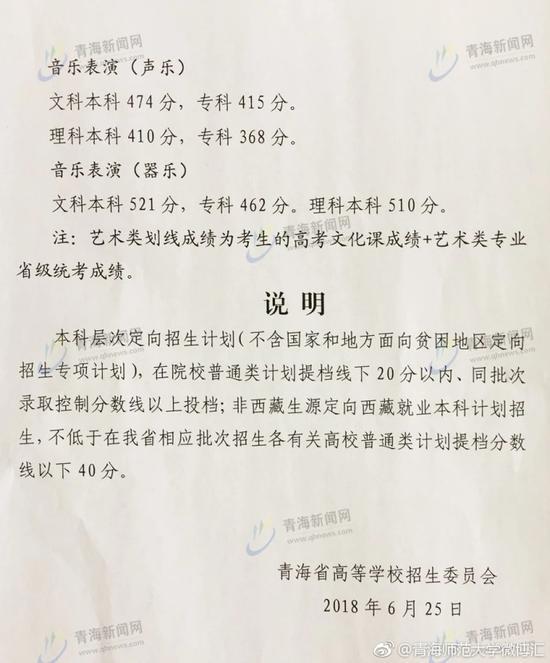 青海新闻网
www.qhnews.com
青海新闻网
www.qhnews.com
音乐表演（声乐）
文科本科 474 分，专科 415 分。
理科本科 410 分，专科 368 分。
音乐表演（器乐）
文科本科 521 分，专科 462 分。理科本科 510 分。
青海新闻网
www.qhnews.com
青海新闻网
www.qhnews.com
注：艺术类划线成绩为考生的高考文化课成绩+艺术类专业
省级统考成绩。
说 明
本科层次定向招生计划（不含国家和地方面向贫困地区定向
招生专项计划），在院校普通类计划提档线下 20 分以内、同批次
录取控制分数线以上投档；非西藏生源定向西藏就业本科计划招
生，不低于在我省相应批次招生各有关高校普通类计划提档分数
线以下 40 分。
青海新闻网
www.qhnews.com
青海新闻网
www.qhnews.com
青海省高等学校招生委员会
2018 年 6 月 25 日
青海新闻网
@青海师范大学微博汇